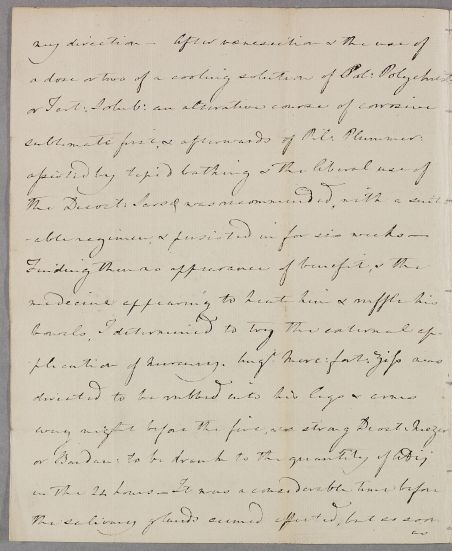 my direction — After venesection & the use of
a dose or two of a cooling solution of Sal: Polychrest:
or Tart: Solub: an alterative course of corrosive
sublimate first, & afterwards of Pil: Plummer:
assisted by tepid bathing & the liberal use of
the Decoct: Sarsæ was recommended, with a suit-
-able regimen, & persisted in for six weeks —
Finding then no appearance of benefit, & the
medicine appearing to heat him & ruffle his
bowels, I determined to try the external ap-
plication of mercury. Ung: Merc: fort: ʒiss was
directed to be rubbed into his legs & arms
every night before the fire, & a strong Decoct: Mezer:
or Bardan: to be drank to the quantity of
in the 24 hours — It was a considerable time before
the salivary glands seemed affected, but as soon
as